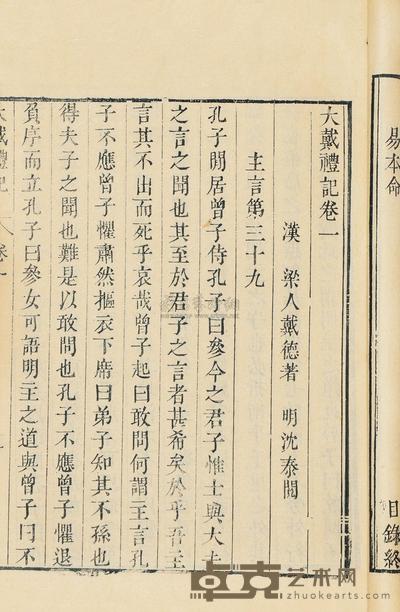 易本命
目錄終
大戴禮記卷一
漢 梁人戴德著 明沈泰閲
主言第三十九
孔子閒居曾子侍孔子曰參今之君子惟士與大夫
之言之聞也其至於君子之言者甚希矣於乎吾王
言其不出而死乎哀哉曾子起曰敢問何謂主言孔
子不應曾子懼肅然摳衣下席曰弟子知其不孫也
得夫子之聞也難是以敢問也孔子不應曾子懼退
負序而立孔子曰參女可語明主之道與曾子曰不
大戴禮記 卷一
卓克艺术网
www.zhuokearts.com